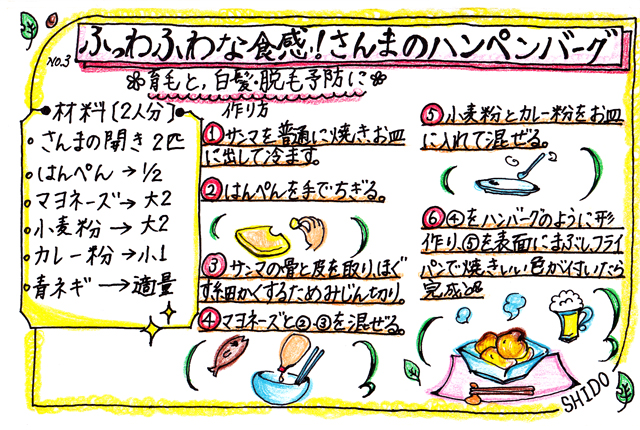 No.3
ふっわふわな食感!さんまのハンペンバーグ
育毛と,白髪・脱毛予防に
材料〔2人分〕
さんまの開き 2匹
はんぺん→1/2
マヨネーズ→大2
小麦粉→大2
カレー粉→小1
青ネギ→適量
作り方
①サンマを普通に焼きお皿
に出して冷ます。
②はんぺんを手でちぎる。
③サンマの骨と皮を取り、ほぐ
す細かくするためみじん切り。
④マヨネーズと②,③を混ぜる。
⑤小麦粉とカレー粉をお皿
に入れて混ぜる。
⑥④をハンバーグのように形
作り、⑤を表面にまぶしフライ
パンで焼きしい色が付いたら
完成
SHIDO